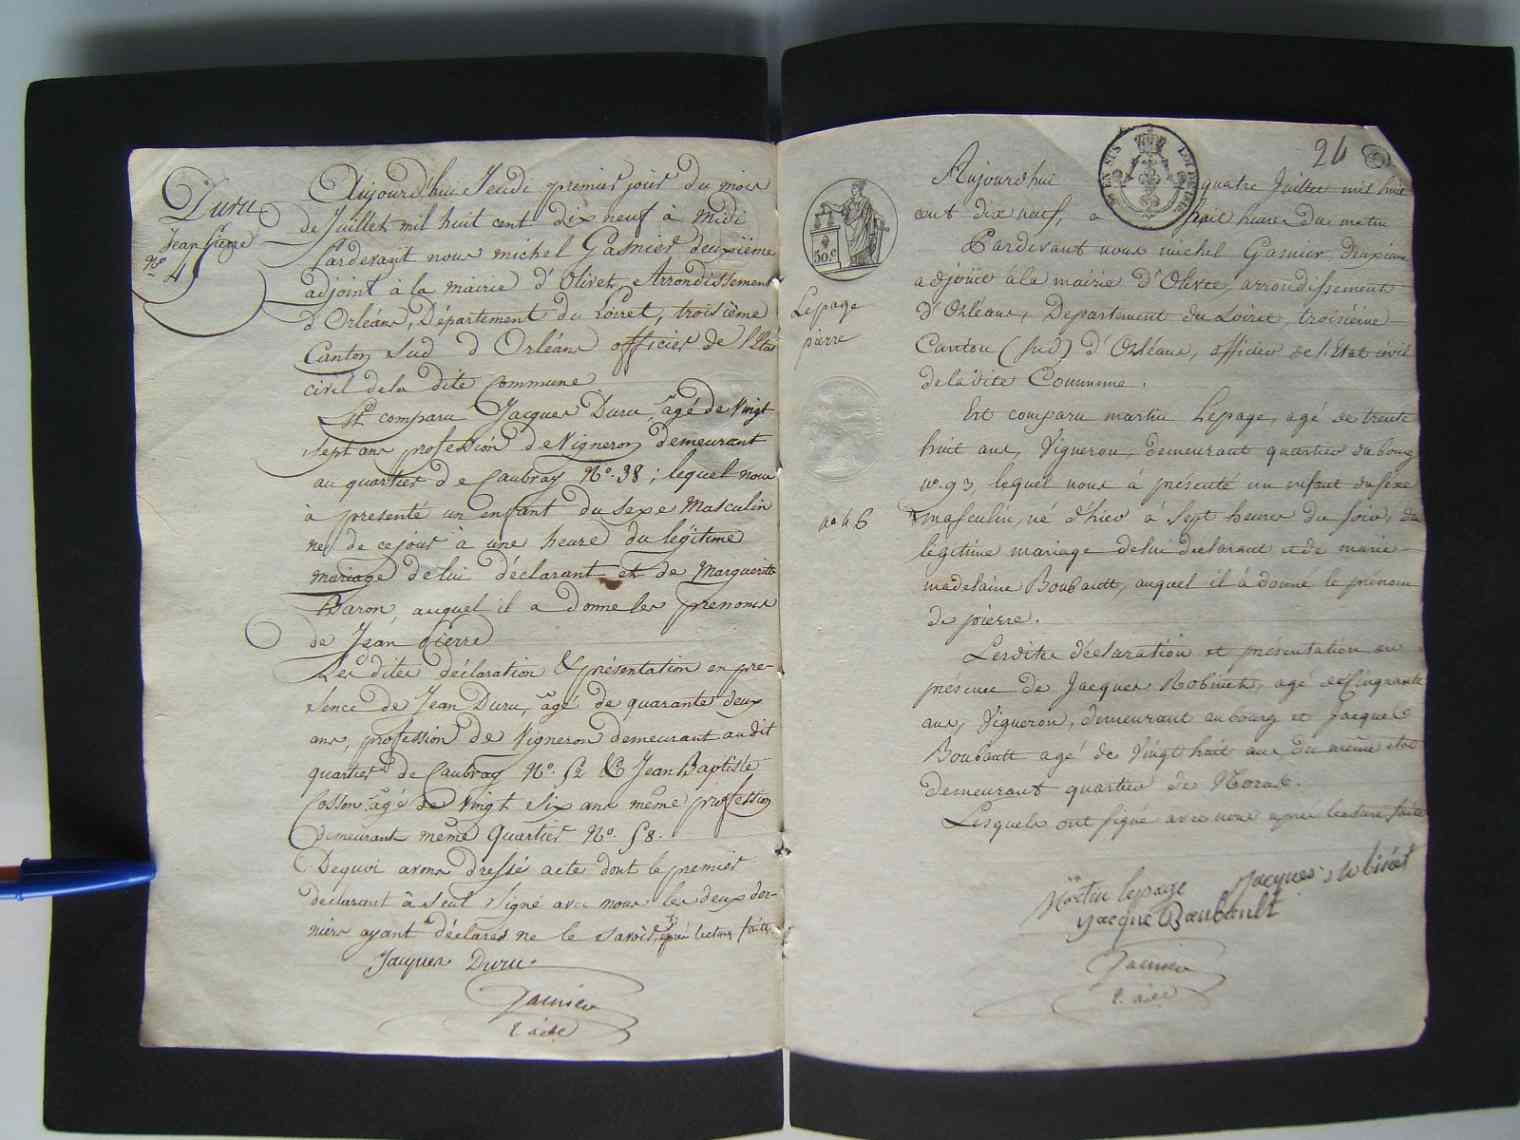 Duru
Jean Pierre
No
Aujourd'hui Jeudi premier jour du mois
de Juillet mil huit cent dix neuf à midi
Pardevant nous michel Gasnier deuxième
adjoint à la mairie d'Olivet, Arrondissement
d'Orléans, Département du Loiret, troisième
Canton Sud d'Orléans officier de l'Etat
civil de la dite Commune
Est comparu Jacques Duru, agé de Vingt
sept ans profession de Vigneron demeurant
au quartier de Caubray No. 38; lequel nous
à presenté un enfant du sexe Masculin
né de ce jour à une heure du légitime
mariage de lui déclarant et de Marguerite
Baron, auquel il a donné les prenoms
de Jean Pierre
Les dites déclaration & présentation en pré-
sence de Jean Duru, agé de quarante deux
ans, profession de Vigneron demeurant au dit
quartier de Caubray No. 52 & Jean Baptiste
Cosson agé de Vingt six ans même profession
demeurant même Quartier No. 58.
De quoi avons dressé acte dont le premier
déclarant à seul signé avec nous les deux der-
niers ayant déclarés ne le savoir, après lecture faite.
Jacques Duru
Gasnier
2. adj
26
30c
Lepage
pierre
Aujourd'hui quatre Juillet mil huit
cent dix neuf, à huit heures du matin
Pardevant nous michel Gasnier Deuxième
adjoint à la mairie d'Olivet, arrondissement
d'Orléans, Département du Loiret, troisième
Canton (sud) d'Orléans, officier de l'Etat civil
de la dite Commune.
Est comparu martin Lepage, agé de trente
huit ans, Vigneron, demeurant quartier du bourg
no. 93, lequel nous à présenté un enfant du sexe
masculin, né d'hier à sept heures du soir, du
légitime mariage de lui déclarant et de marie
madelaine Boubault, auquel il à donné le prénom
de pierre.
Lesdites déclaration et présentation en
présence de Jacques Robinet, agé de Cinquante
ans, Vigneron, demeurant au bourg et Jacques
Boubault agé de Vingt huit ans, du même état
demeurant quartier de
Lesquels ont signé avec nous après lecture faite
Martin lepage Jacques robinet
Jacque Baubault
Gasnier
2. adj